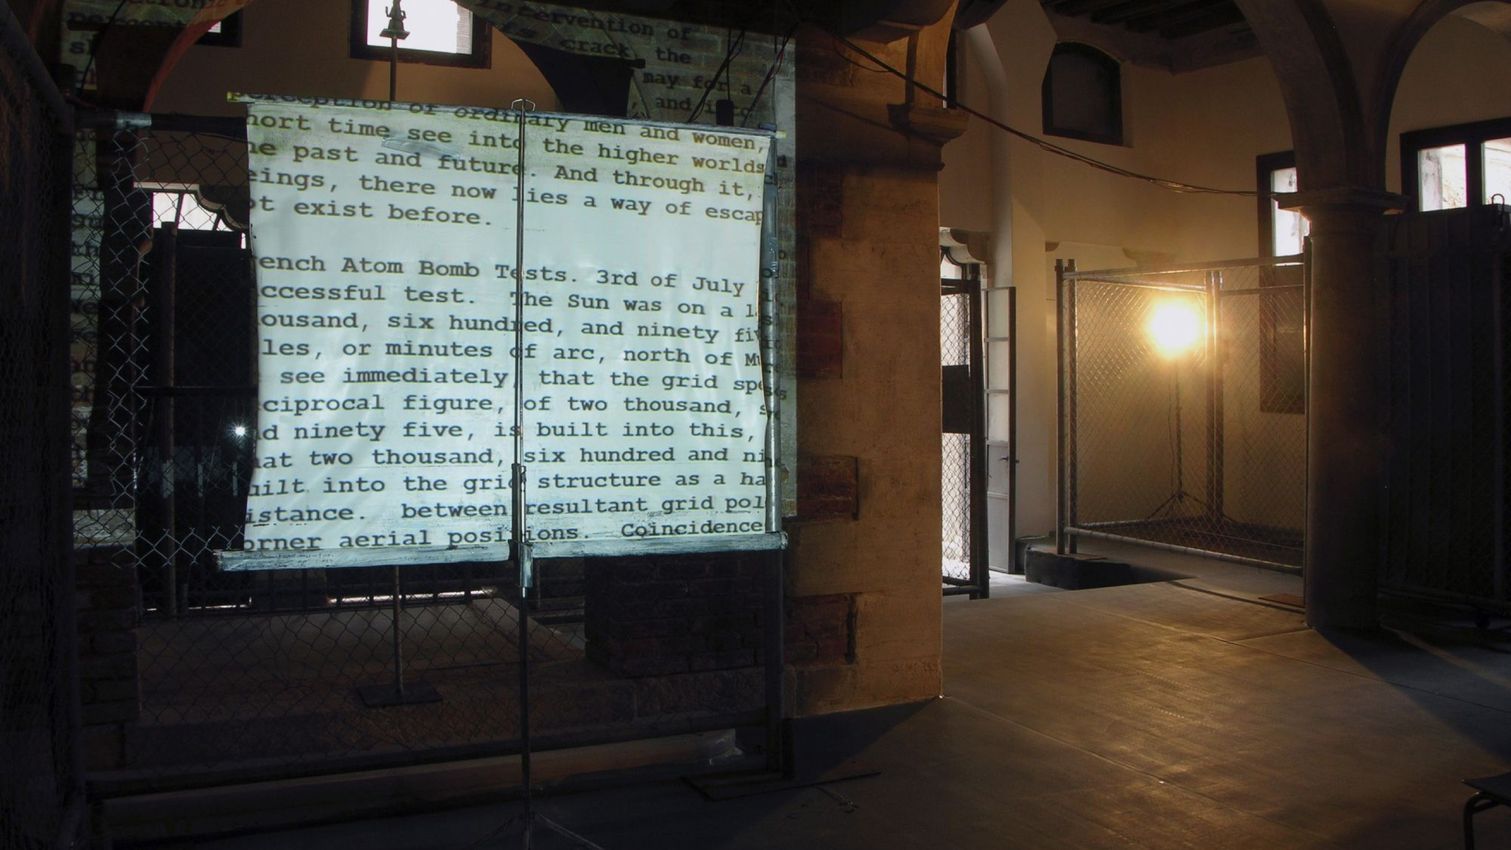 intervention of
crack, the
may for a
, and i
perception of ordinary men and women,
hort time see into the higher worlds
he past and future. And through it,
eings, there now lies a way of escap
ot exist before.
ench Atom Bomb Tests. 3rd of July
ccessful test. The Sun was on a la
ousand, six hundred, and ninety fiv
les, or minutes of arc, north of Mu
see immediately, that the grid spe
ciprocal figure, of two thousand, s
d ninety five, is built into this,
hat two thousand, six hundred and ni
uilt into the grid structure as a ha
istance. between resultant grid pol
orner aerial positions. Coincidence